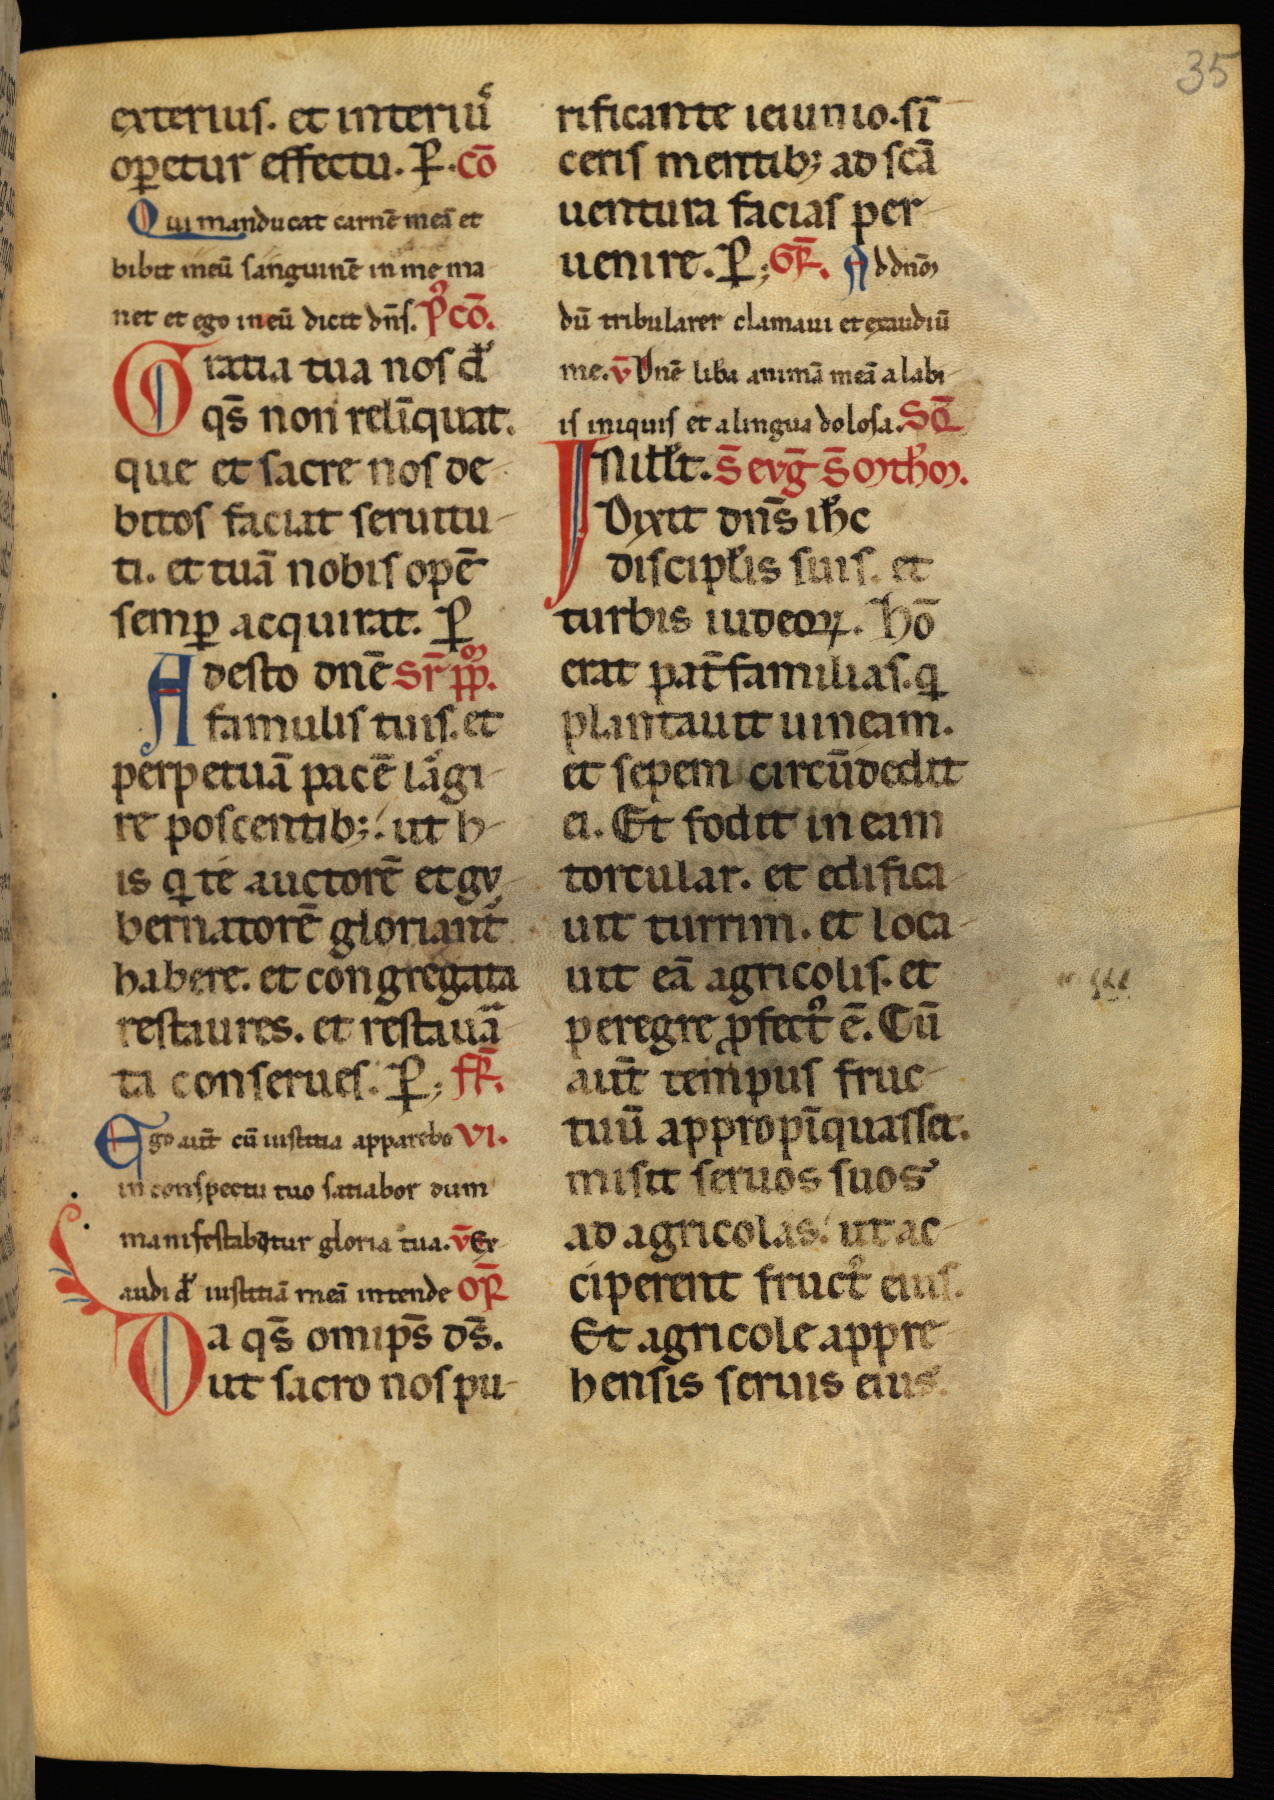 35
exterius. et interiꝰ
opetur effectu. P. cō
Qui manducat carnē meā et
bibit meū sanguinē in me ma
net et ego in eū dicit dn̄s. P̊ cō.
Gratia tua nos d̄
qs̄ non relīquat.
que et sacre nos de
ditos faciat seruitu
ti. et tuā nobis opē
semꝑ acquirat. P
Adesto dn̄e sr̄ pp̄lm.
famulis tuis. et
perpetuā pacē lagi
re poscentib;. ut h
is q te auctorē et gv
bernatorē gloriant̄
habere. et congregata
restaures. et restaua
ta conserues. P; fR̄.
Ego aut̄ cū iustitia apparebo VI.
in conspectu tuo satiabor dum
manifestabitur gloria tua. v̄ Ex
audi d̄ iustitiā meā intende oR̄
Da qs̄ omīps̄ ds̄.
ut sacro nos pu
rificante ieiunio. sī
ceris mentib; ad scā
uentura facias per
uenire. P; GR̄. Ad dnm̄
dū tribularer clamaui et exaudiū
me. v̄ Dn̄e liba animā meā a labi
is iniquis et a lingua dolosa. Sq̄
In illł t. S̄ evḡ S̄ mthm.
Dixit dn̄s ih̄c
discipłis suis. et
turbis iudeoꝝ. Hō
erat pat̄familias. q
plantauit uineam.
et sepem circūdedit
ei. Et fodit in eam
torcular. et edifica
uit turrim. et loca
uit eā agricolis. et
peregre ꝓfect̉ ē. Cū
aut̄ tempus fruc
tuū appropīquasset.
misit seruos suos
ad agricolas. ut ac
ciperent fruct̉ eius.
Et agricole appre
hensis seruis eius.